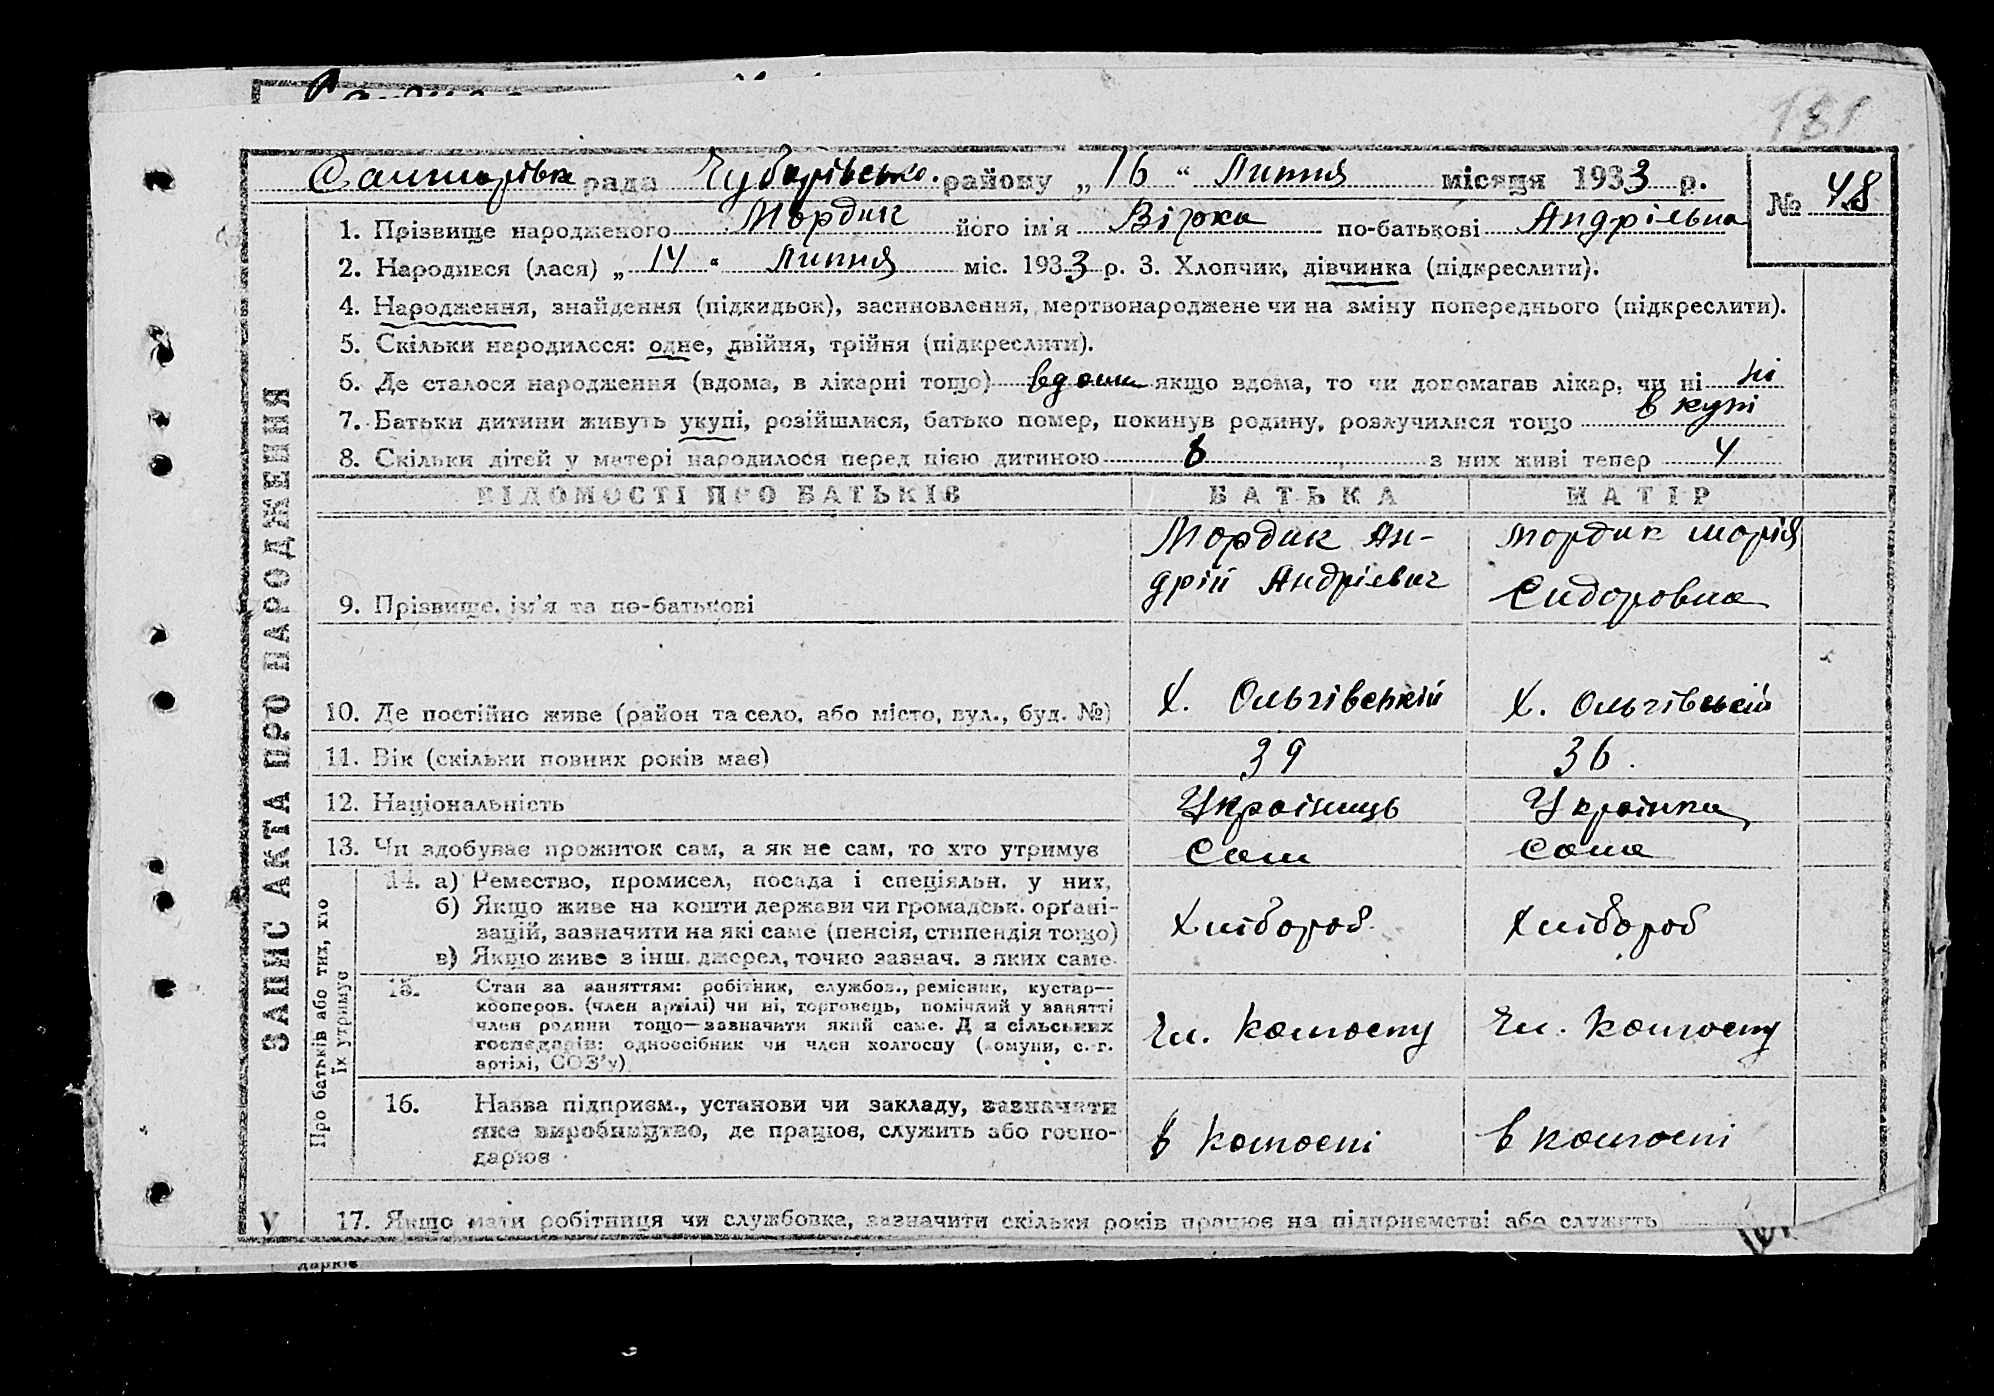 181
рада Чубарівсько. району „ 16 “ Липня місяця 1933 р.
№ 48
1. Прізвище народженого Мордик його ім'я Вірка по-батькові Андрієвна
2. Народився (лася) „ 14 “ Липня міс. 1933 р. 3. Хлопчик, дівчинка (підкреслити).
4. Народження, знайдення (підкидьок), засиновлення, мертвонароджене чи на зміну попереднього (підкреслити).
5. Скільки народилося: одне, двійня, трійня (підкреслити).
6. Де сталося народження (вдома, в лікарні тощо) вдома якщо вдома, то чи допомагав лікар, чи ні ні
7. Батьки дитини живуть укупі, розійшлися, батько помер, покинув родину, розлучилися тощо в купі
8. Скільки дітей у матері народилося перед цією дитиною 8 з них живі тепер 4
ЗАПИС АКТА ПРО НАРОДЖЕННЯ
ВІДОМОСТІ ПРО БАТЬКІВ БАТЬКА МАТІР
9. Прізвище, ім'я та по-батькові
Мордик Ан-
дрій Андрієвич
Мордик Марія
Сидоровна
10. Де постійно живе (район та село, або місто, вул., буд. №) Х. Ольгівський Х. Ольгівський
11. Вік (скільки повних років має) 39 36.
12. Національність Українець Українка
13. Чи здобуває прожиток сам, а як не сам, то хто утримує Сам Сама
Про батьків або тих, хто
їх утримує
14. а) Ремество, промисел, посада і спеціяльн. у них,
б) Якщо живе на кошти держави чи громадськ. орґані-
зацій, зазначити на які саме (пенсія, стипендія тощо)
в) Якщо живе з інш. джерел, точно зазнач. з яких саме
Хлібороб Хлібороб
15. Стан за заняттям: робітник, службов., ремісник, кустар—
кооперов. (член артілі) чи ні, торговець, помічний у занятті
член родини тощо—зазначити який саме. Для сільських
господарів: одноосібник чи член колгоспу (комуни, с.-г.
артілі, СОЗ'у)
Чл. Колгоспу Чл. Колгоспу
16. Назва підприєм., установи чи закладу, зазначити
яке виробництво, де працює, служить або госпо-
дарює
в колгоспі в колгоспі
V
17. Якщо мати робітниця чи службовка, зазначити скільки років працює на підприємстві або служить
дарює